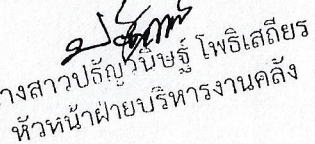 างสาวปธัญวนิษฐ์ โพธิเสถียร
หัวหน้าฝ่ายบริหารงานคลัง